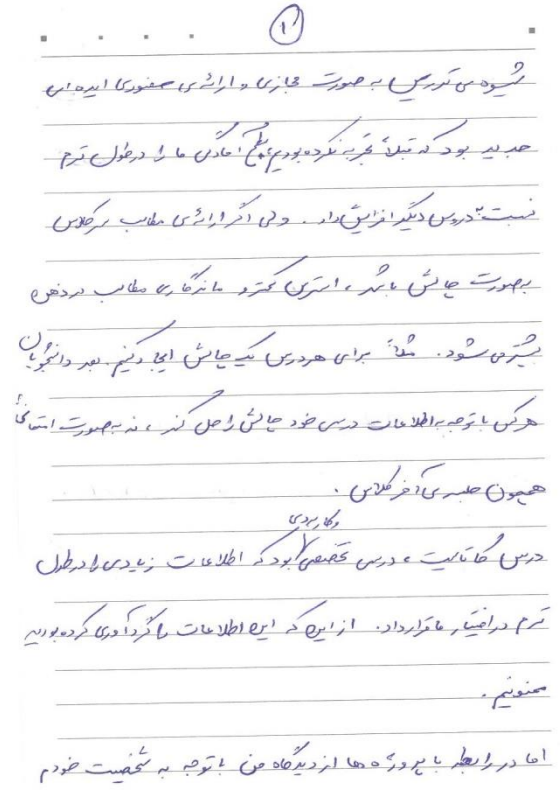 ۱
شیوه‌ی تدریس به صورت مجازی و ارائه‌ی حضوری ایده‌ای
جدید بود که قبلاً تجربه نکرده بودیم، سطح آمادگی ما را در طول ترم
نسبت به دروس دیگر افزایش داد. ولی اگر ارائه‌ی مطالب سر کلاس
به صورت چالش باشد، استرس کمتر و ماندگاری مطالب در ذهن
بیشتر می‌شود. مثلاً برای هر درس یک چالش ایجاد کنیم. بعد دانشجویان
هر کس با توجه به اطلاعات درسی خود چالش را حل کند، نه به صورت امتحانی
همچون جلسه‌ی آخر کلاس.
درس کاتالیست، درسی تخصصی و کاربردی بود که اطلاعات زیادی را در طول
ترم در اختیار ما قرار داد. از این که این اطلاعات را گردآوری کرده بودید
ممنونیم.
اما در رابطه با پروژه ها از دیدگاه من با توجه به شخصیت خودم